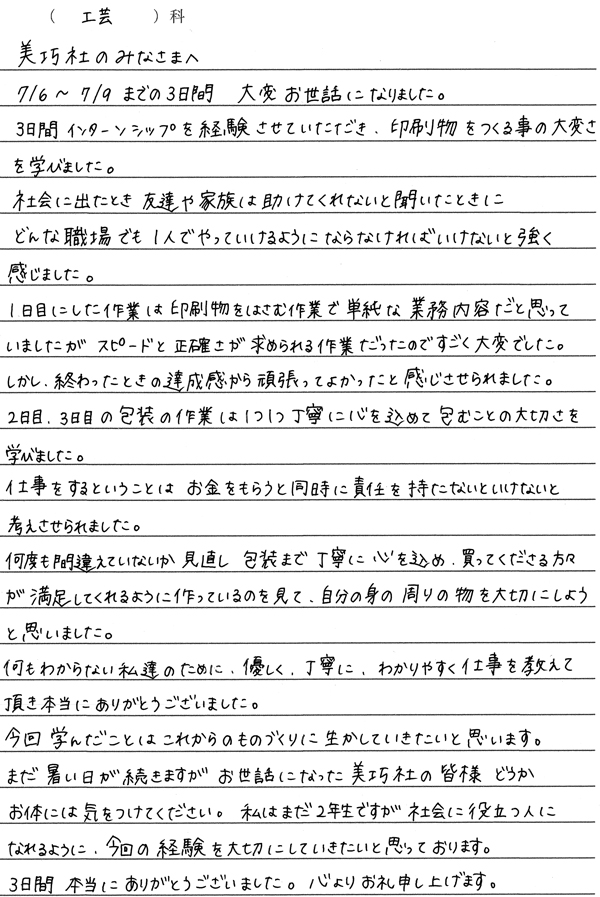 （ 工芸 ）科
美巧社のみなさまへ
7/6 ～ 7/9 までの3日間 大変 お世話になりました。
3日間 インターンシップを経験させていただき、印刷物をつくる事の大変さ
を学びました。
社会に出たとき 友達や家族は助けてくれないと聞いたときに
どんな職場でも1人でやっていけるようにならなければいけないと強く
感じました。
1日目にした作業は印刷物をはさむ作業で単純な業務内容だと思って
いましたが スピードと正確さが求められる作業だったのですごく大変でした。
しかし、終わったときの達成感から頑張ってよかったと感じさせられました。
2日目、3日目の包装の作業は1つ1つ丁寧に心を込めて包むことの大切さを
学びました。
仕事をするということは お金をもらうと同時に責任を持たないといけないと
考えさせられました。
何度も間違えていないか見直し 包装まで丁寧に心を込め、買ってくださる方々
が満足してくれるように作っているのを見て、自分の身の周りの物を大切にしよう
と思いました。
何もわからない私達のために、優しく、丁寧に、わかりやすく仕事を教えて
頂き本当にありがとうございました。
今回学んだことはこれからのものづくりに生かしていきたいと思います。
まだ暑い日が続きますが お世話になった美巧社の皆様 どうか
お体には気をつけてください。私はまだ2年生ですが社会に役立つ人に
なれるように、今回の経験を大切にしていきたいと思っております。
3日間 本当にありがとうございました。心よりお礼申し上げます。